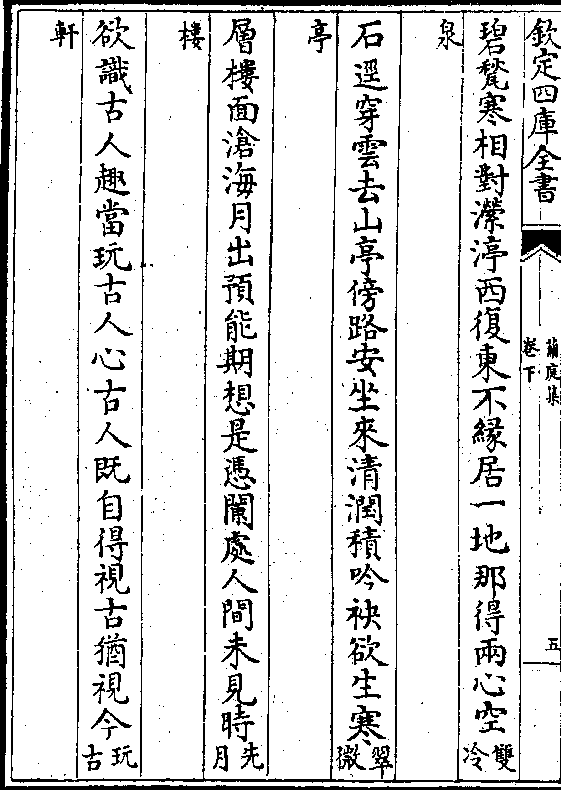 欽定四庫全書
蘭庭集
卷下
五
碧甃寒相對瀠渟西復東不緣居一地那得兩心空雙冷
泉
石逕穿雲去山亭傍路安坐來清潤積吟袂欲生寒翠微
亭
層樓面滄海月出預能期想是憑闌處人間未見時先月
樓
欲識古人趣當玩古人心古人既自得視古猶視今玩古
軒